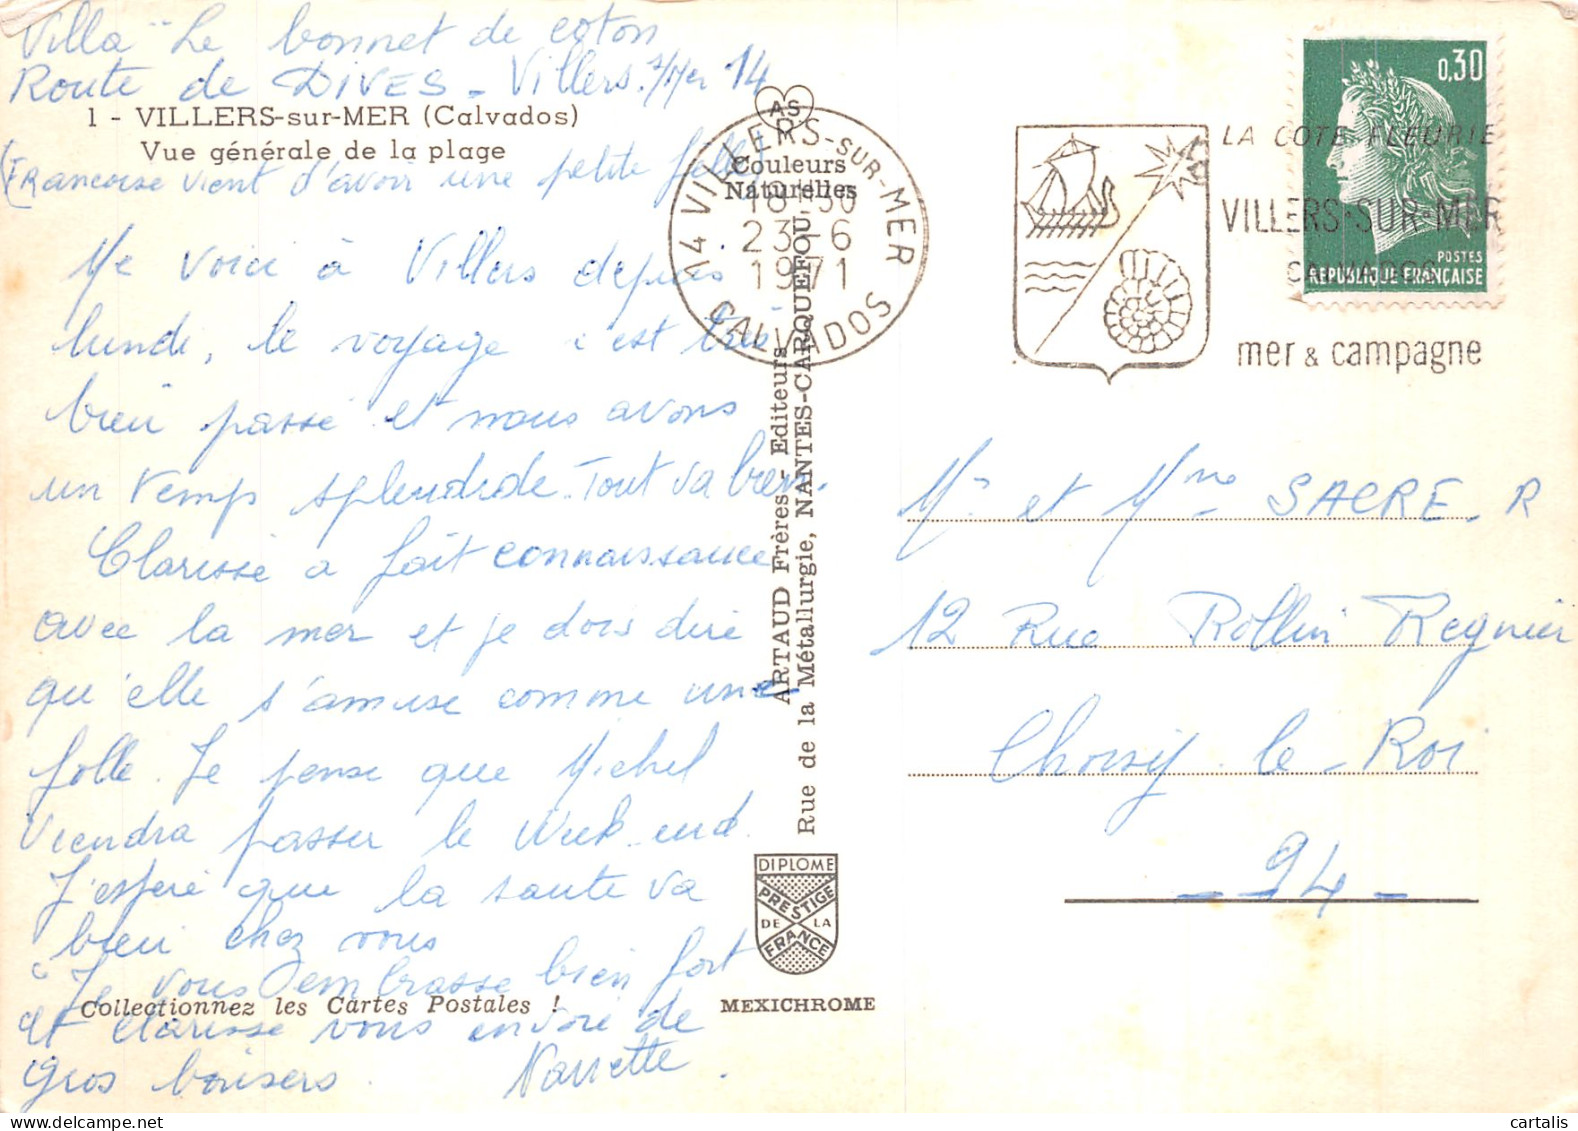 Villa "Le bonnet de coton
Route de DIVES - Villers s/Mer 14
1 - VILLERS-sur-MER (Calvados)
Vue générale de la plage
(Francoise vient d'avoir une petite fille)
Me voici à Villers depuis
lundi, le voyage c'est très
bien passé et nous avons
un temps splendide. Tout va bien.
Clarisse a fait connaissance
avec la mer et je dois dire
qu'elle s'amuse comme une
folle. Je pense que Michel
viendra passer le Week-end.
J'espère que la santé va
bien chez vous
Je vous embrasse bien fort
et Clarisse vous envoie de
gros baisers.
Nanette.
Collectionnez les Cartes Postales !
AS
Couleurs
Naturelles
ARTAUD Frères - Editeurs
Rue de la Métallurgie, NANTES-CARQUEFOU
DIPLOME
PRESTIGE
DE LA
FRANCE
MEXICHROME
14 VILLERS-SUR-MER
18H30
23-6
1971
CALVADOS
LA COTE FLEURIE
VILLERS-SUR-MER
CALVADOS
mer & campagne
0,30
POSTES
REPUBLIQUE FRANÇAISE
Mr et Mme SACRE. R
12 Rue Rollin Regnier
Choisy-le-Roi
- 94 -
cartalis